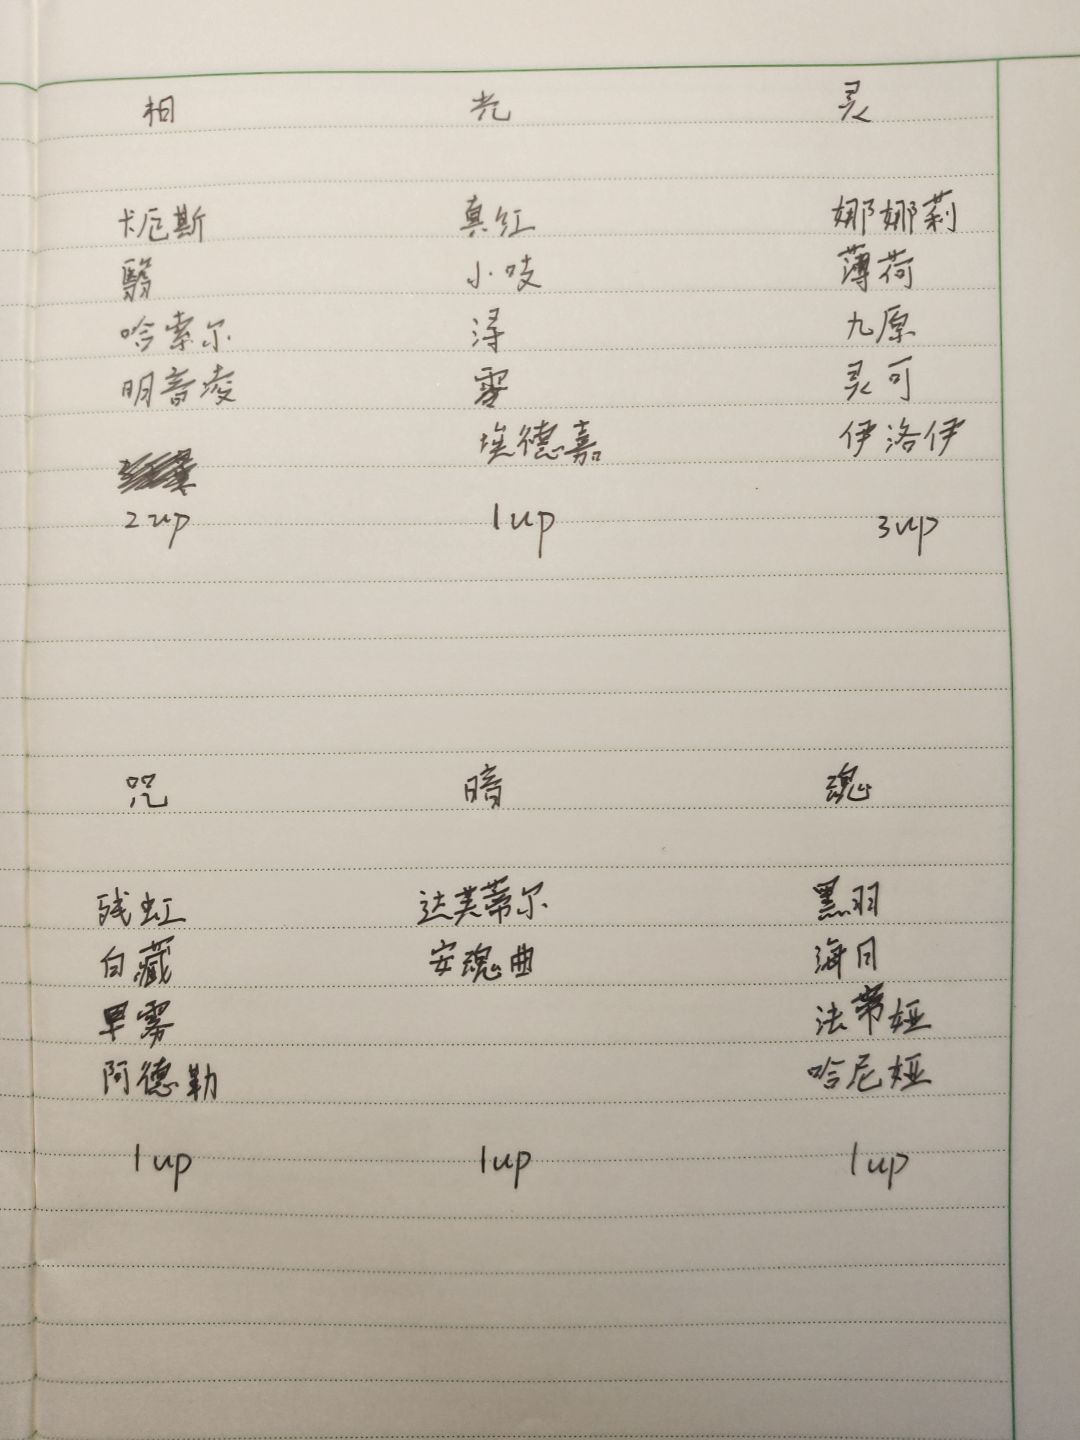 相
卡厄斯
翳
哈索尔
明音凌
2up
光
真红
小吱
浔
零
埃德嘉
1up
灵
娜娜莉
薄荷
九原
灵可
伊洛伊
3up
咒
残虹
白藏
早雾
阿德勒
1up
暗
达芙蒂尔
安魂曲
1up
魂
黑羽
海月
法蒂娅
哈尼娅
1up